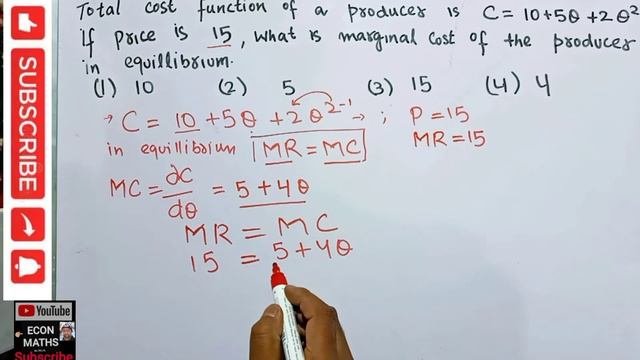 Total cost function of a producer is C = 10+5Q+2Q²
If price is 15, what is marginal cost of the producer
in equillibrium.
(1) 10 (2) 5 (3) 15 (4) 4
C = 10 + 5Q + 2Q²⁻¹ → ; P = 15
in equillibrium MR = MC MR = 15
MC = dC/dQ = 5 + 4Q
MR = MC
15 = 5 + 4Q
SUBSCRIBE
YouTube
ECON
MATHS
Subscribe